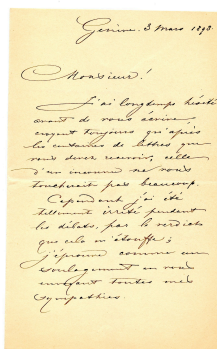 Genève. 3 Mars 1898.
Monsieur!
J'ai longtemps hésité
avant de vous écrire,
croyant toujours qu'après
les centaines de lettres que
vous devez recevoir, celle
d'un inconnu ne vous
toucherait pas beaucoup.
Cependant j'ai été
tellement irrité pendant
les débats, par le verdict
que cela m'étouffe;
j'éprouve comme un
soulagement en vous
envoyant toutes mes
sympathies.